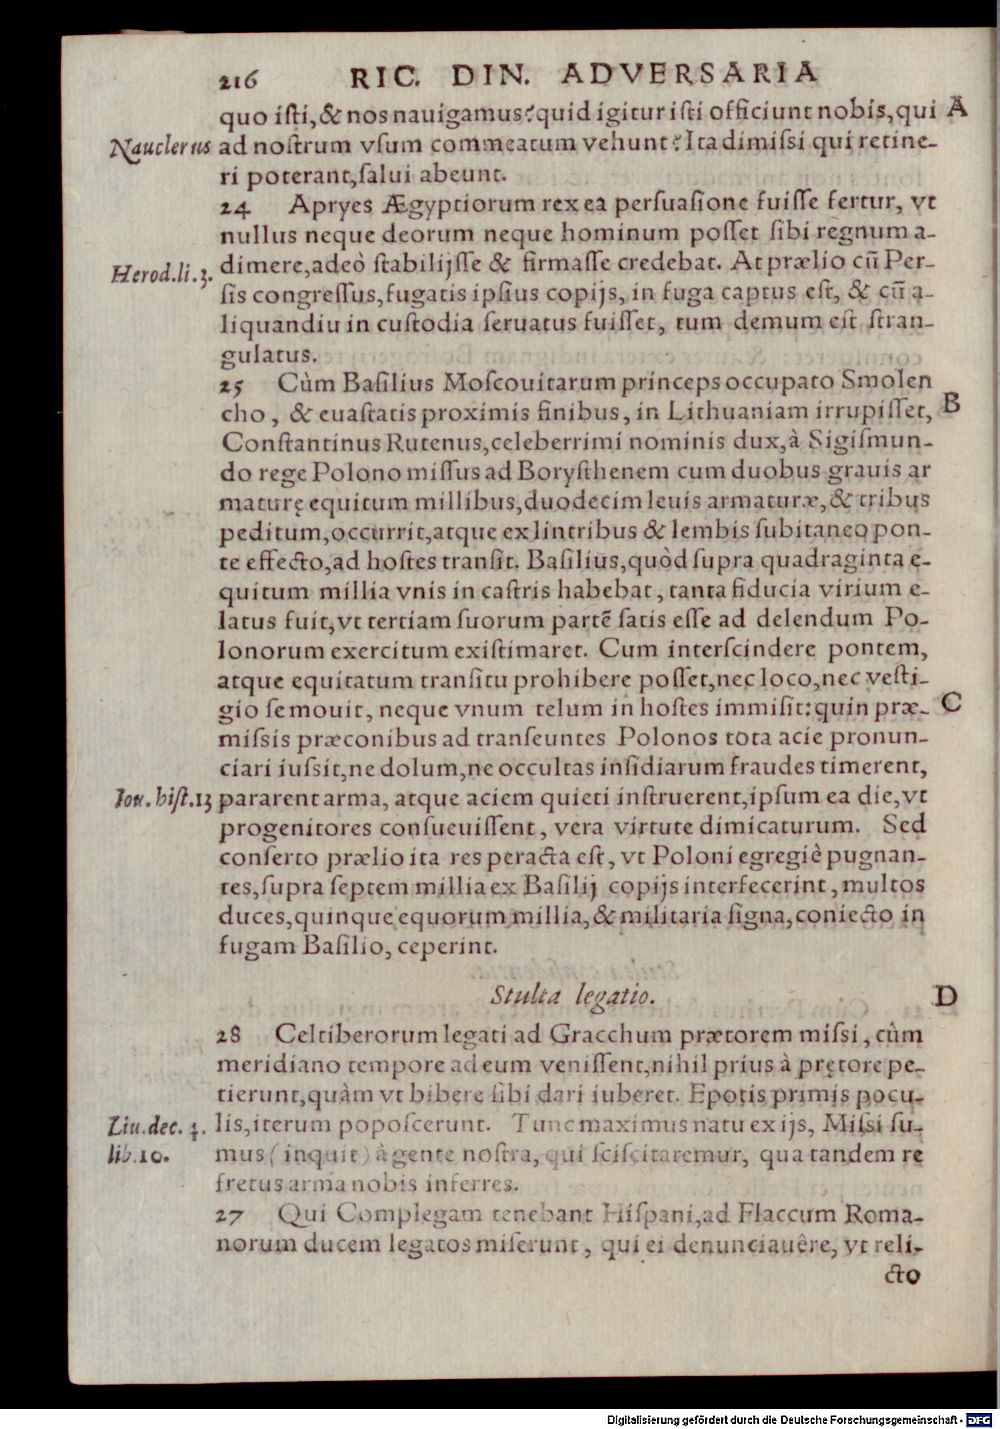 216 RIC. DIN. ADVERSARIA
quo iſti, & nos nauigamus? quid igitur iſti officiunt nobis, qui A
Nauclerus ad noſtrum vſum commeatum vehunt? Ita dimiſsi qui retine-
ri poterant, ſalui abeunt.
24 Apryes Ægyptiorum rex ea perſuaſione fuiſſe fertur, vt
nullus neque deorum neque hominum poſſet ſibi regnum a-
Herod. li. 3. dimere, adeò ſtabilijſſe & firmaſſe credebat. At prælio cũ Per-
ſis congreſſus, fugatis ipſius copijs, in fuga captus eſt, & cũ a-
liquandiu in cuſtodia ſeruatus fuiſſet, tum demum eſt ſtran-
gulatus.
25 Cùm Baſilius Moſcouitarum princeps occupato Smolen
cho, & euaſtatis proximis finibus, in Lithuaniam irrupiſſet, B
Conſtantinus Rutenus, celeberrimi nominis dux, à Sigiſmun-
do rege Polono miſſus ad Boryſthenem cum duobus grauis ar
maturę equitum millibus, duodecim leuis armaturæ, & tribus
peditum, occurrit, atque ex lintribus & lembis ſubitaneo pon-
te effecto, ad hoſtes tranſit. Baſilius, quòd ſupra quadraginta e-
quitum millia vnis in caſtris habebat, tanta fiducia virium e-
latus fuit, vt tertiam ſuorum partẽ ſatis eſſe ad delendum Po-
lonorum exercitum exiſtimaret. Cum interſcindere pontem,
atque equitatum tranſitu prohibere poſſet, nec loco, nec veſti-
gio ſe mouit, neque vnum telum in hoſtes immiſit: quin præ- C
miſsis præconibus ad tranſeuntes Polonos tota acie pronun-
ciari iuſsit, ne dolum, ne occultas inſidiarum fraudes timerent,
Iou. hiſt. 13 pararent arma, atque aciem quieti inſtruerent, ipſum ea die, vt
progenitores conſueuiſſent, vera virtute dimicaturum. Sed
conſerto prælio ita res peracta eſt, vt Poloni egregiè pugnan-
tes, ſupra ſeptem millia ex Baſilij copijs interfecerint, multos
duces, quinque equorum millia, & militaria ſigna, coniecto in
fugam Baſilio, ceperint.
Stulta legatio. D
28 Celtiberorum legati ad Gracchum prætorem miſsi, cùm
meridiano tempore ad eum veniſſent, nihil prius à prętore pe-
tierunt, quàm vt bibere ſibi dari iuberet. Epotis primis pocu-
Liu. dec. 4. lis, iterum popoſcerunt. Tunc maximus natu ex ijs, Miſsi ſu-
lib. 10. mus (inquit) à gente noſtra, qui ſciſcitaremur, qua tandem re
fretus arma nobis inferres.
27 Qui Complegam tenebant Hiſpani, ad Flaccum Roma-
norum ducem legatos miſerunt, qui ei denunciauêre, vt reli-
cto
Digitalisierung gefördert durch die Deutsche Forschungsgemeinschaft - DFG